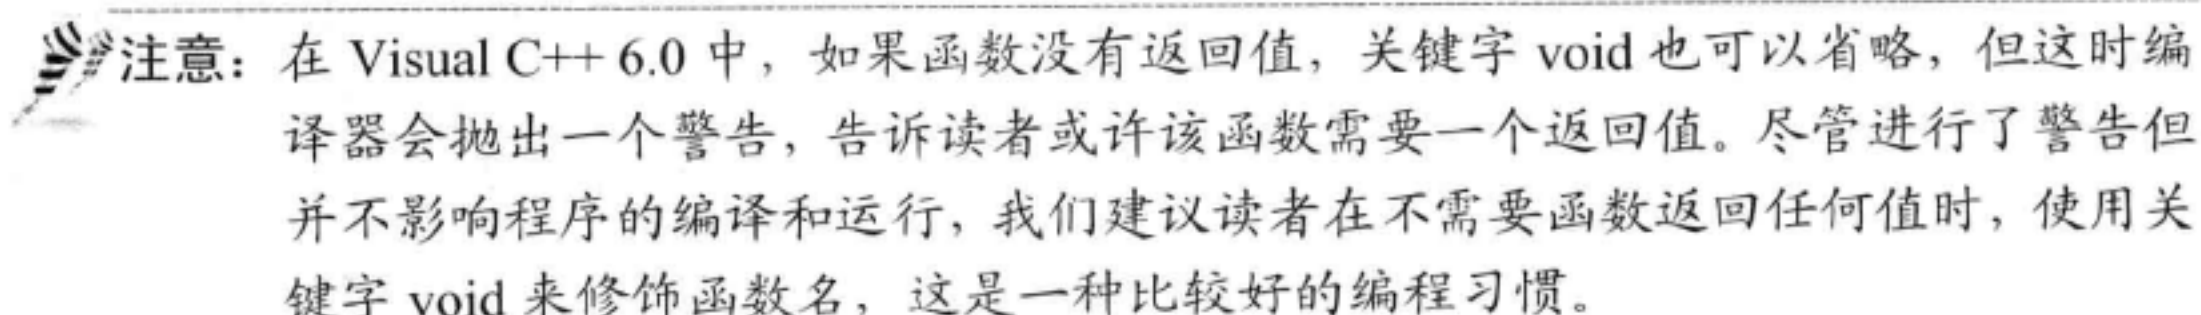 注意：在 Visual C++ 6.0 中，如果函数没有返回值，关键字 void 也可以省略，但这时编
译器会抛出一个警告，告诉读者或许该函数需要一个返回值。尽管进行了警告但
并不影响程序的编译和运行，我们建议读者在不需要函数返回任何值时，使用关
键字 void 来修饰函数名，这是一种比较好的编程习惯。